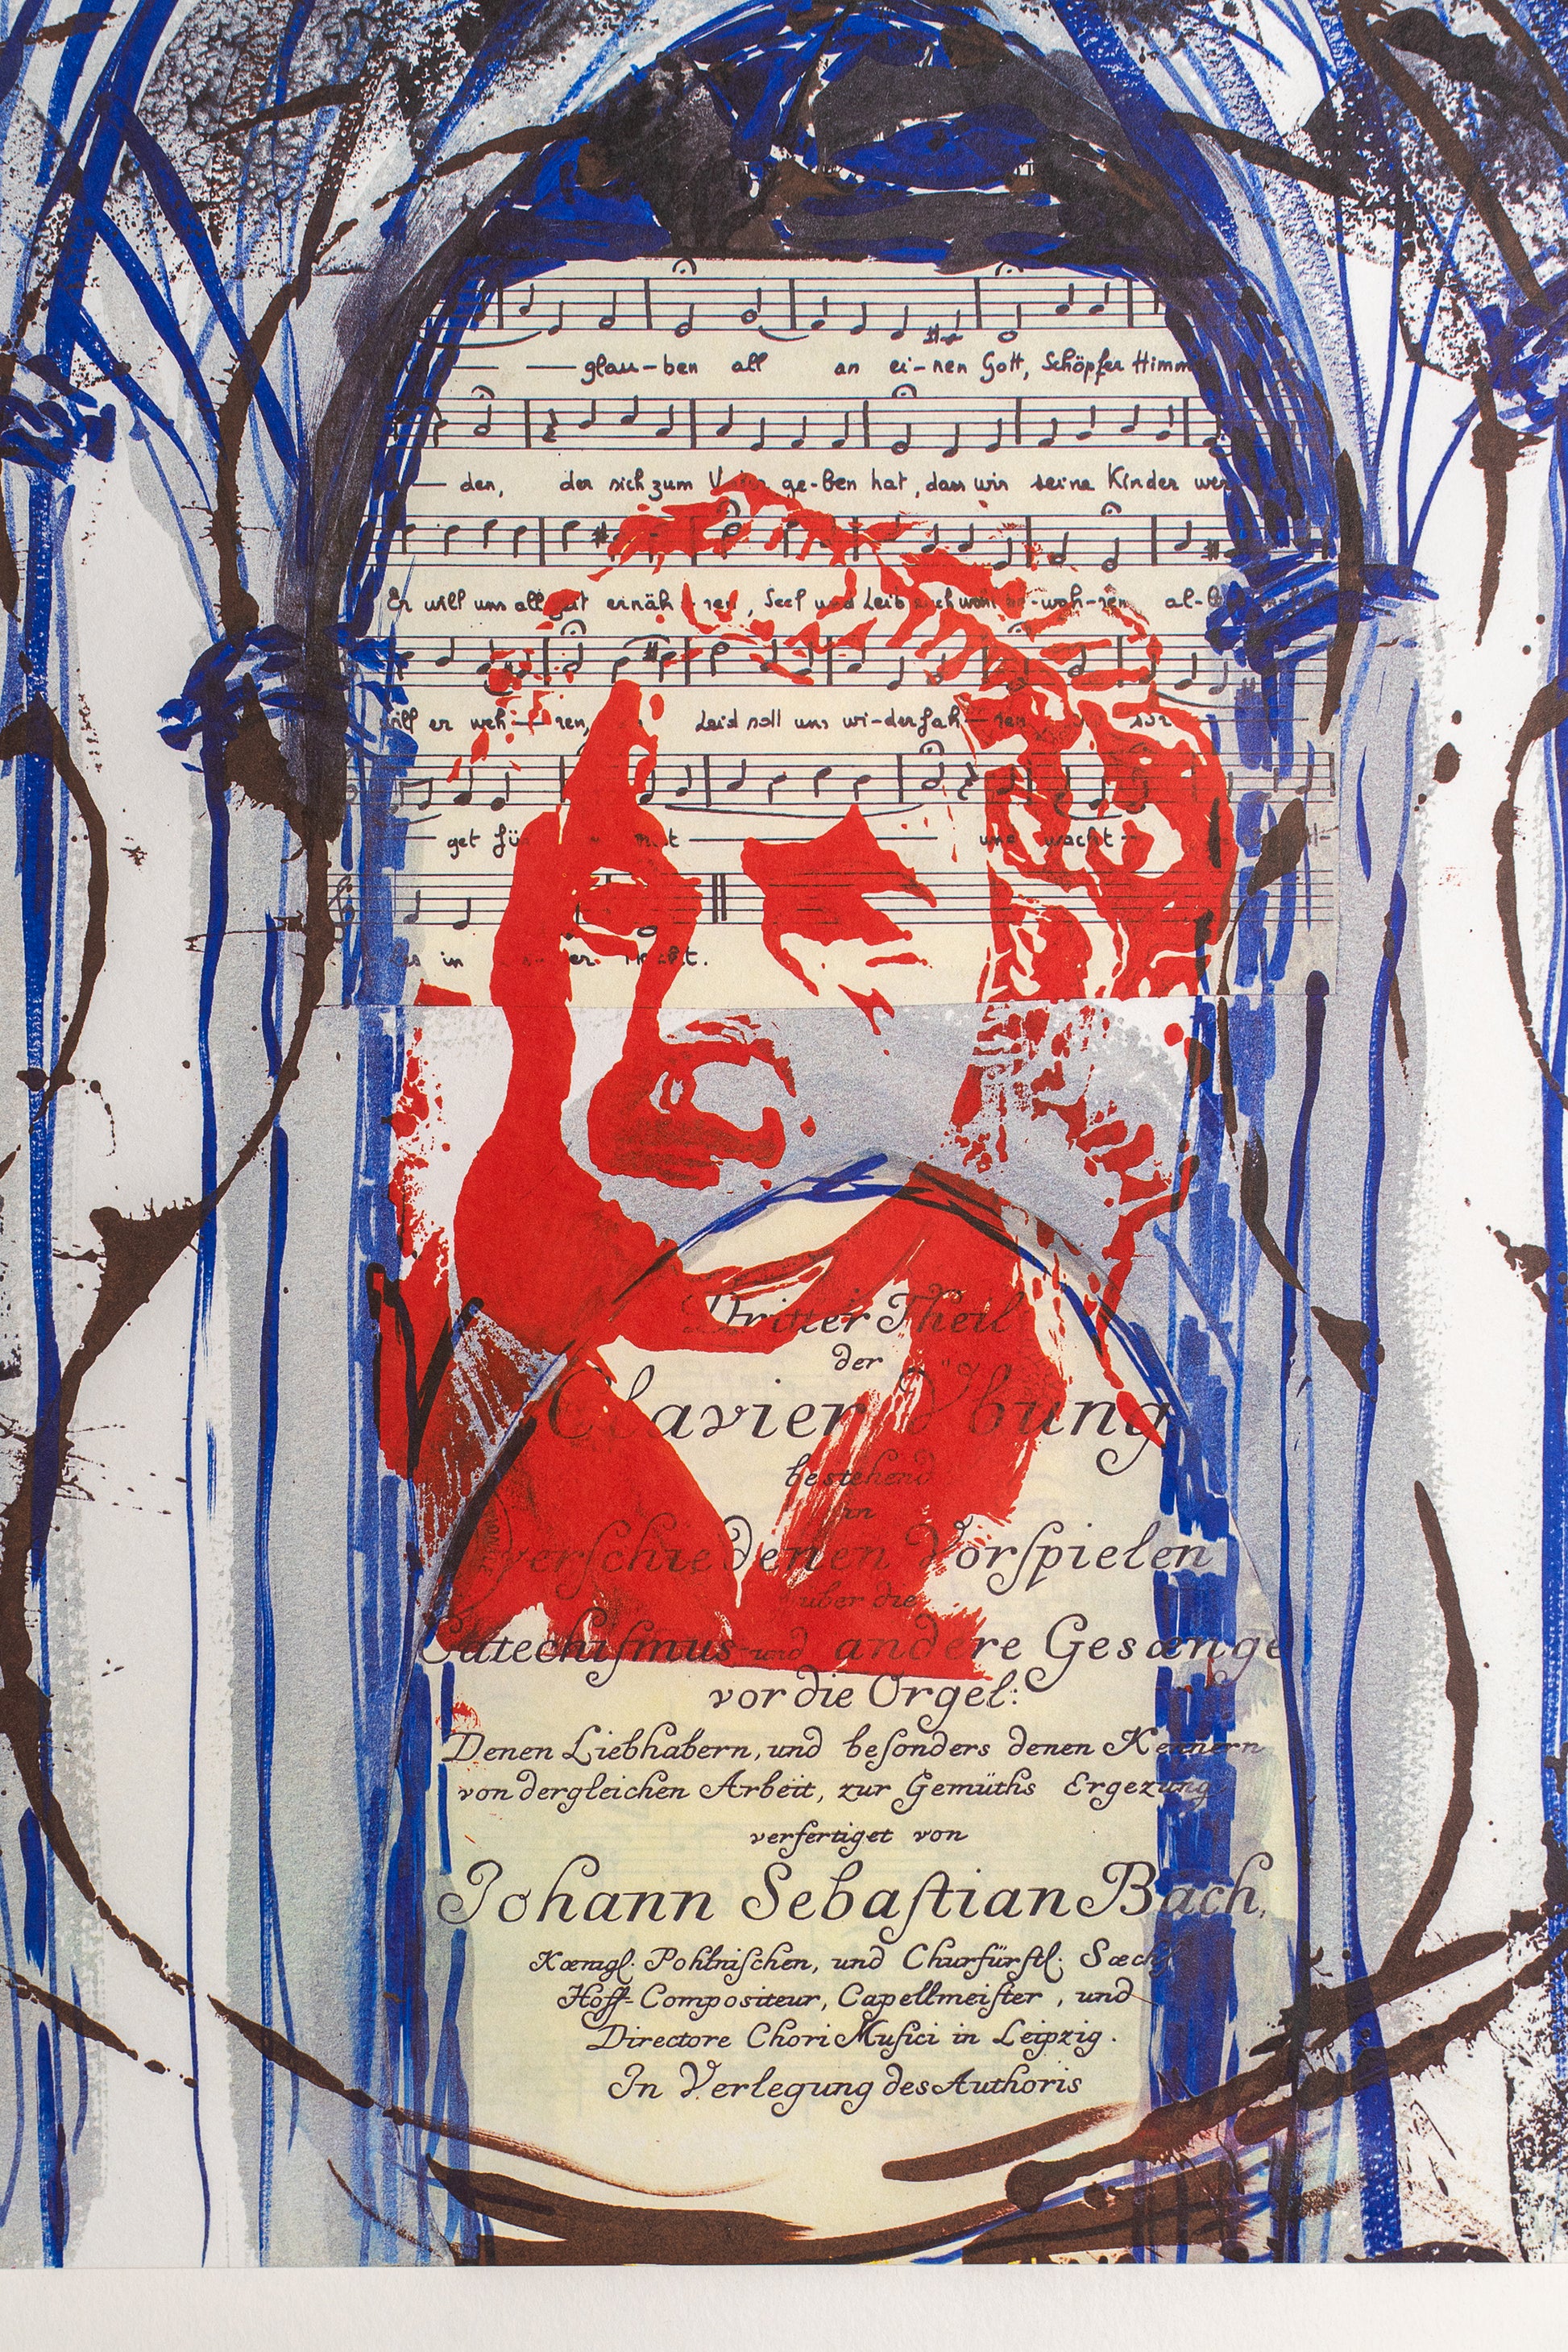 glau-ben all an ei-nen Gott, Schöpfer Himm
den, der sich zum ge-ben hat, dass wir seine Kinder wer
Er will uns all ernäh-ren, Seel und Leib auch wohl be-wah-ren al-l
will er weh-ren, Leid soll uns wi-derfah-ren
get für und wacht
es in er Macht.
Dritter Theil
der
Clavier Ubung
bestehend
in
verschiedenen Vorspielen
über die
Catechismus- und andere Gesænge
vor die Orgel:
Denen Liebhabern, und besonders denen Kennern
von dergleichen Arbeit, zur Gemüths Ergezung
verfertiget von
Johann Sebastian Bach,
Kœnigl. Pohlnischen, und Churfürstl. Sæchs
Hoff-Compositeur, Capellmeister, und
Directore Chori Musici in Leipzig.
In Verlegung des Authoris